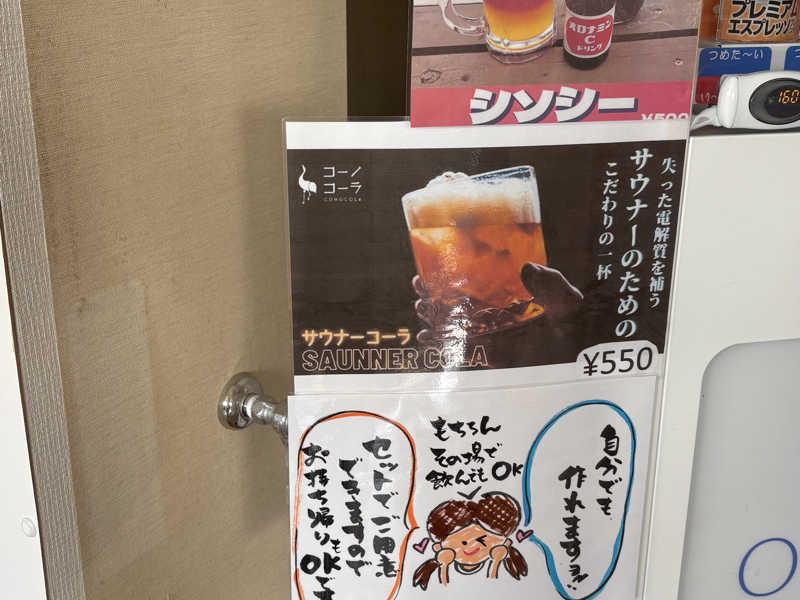 オロナミン
C
ドリンク
プレミアム
エスプレッソ
つめた〜い
160
シンシー
¥500
コーノ
コーラ
CONOCOLA
失った電解質を補う
サウナーのための
こだわりの一杯
サウナーコーラ
SAUNNER COLA
¥550
自分でも
作れますヨ!!
もちろん
その場で
飲んでもOK
セットでご用意
できますので
お持ち帰りもOKです